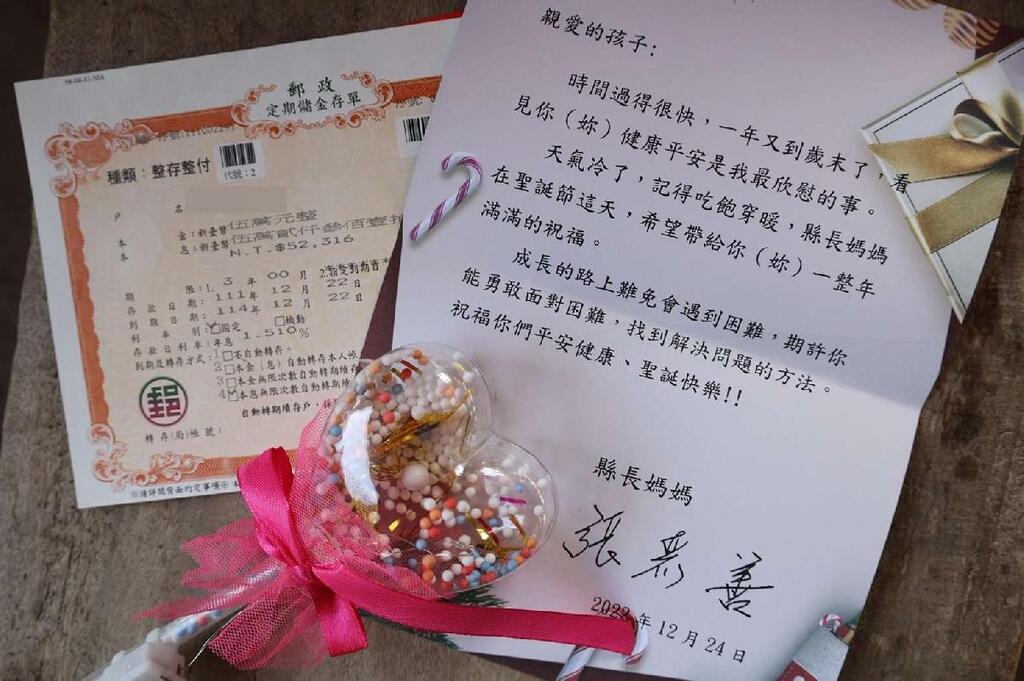 98-04-41-50A
郵政
定期儲金存單
種類：整存整付
代號：2
戶 名
本 金：新臺幣伍萬元整
本 息：新臺幣伍萬貳仟參佰壹拾
N.T.$52,316
期 限：3年00月
存款日期：111年12月22日
到期日期：114年12月22日
利率別：☑固定 □機動
存款日利率：年息1.510%
到期及轉存方式：1□不自動轉存。
2□本金（息）自動轉存本人帳
3□本金無限次數自動轉期續存
4☑本息無限次數自動轉期
自動轉期續存戶，
郵
轉存(局)帳號：
※請詳閱背面約定事項※
親愛的孩子：
時間過得很快，一年又到歲末了，看
見你（妳）健康平安是我最欣慰的事。
天氣冷了，記得吃飽穿暖，縣長媽媽
在聖誕節這天，希望帶給你（妳）一整年
滿滿的祝福。
成長的路上難免會遇到困難，期許你
能勇敢面對困難，找到解決問題的方法。
祝福你們平安健康、聖誕快樂!!
縣長媽媽
張惠善
2022年12月24日